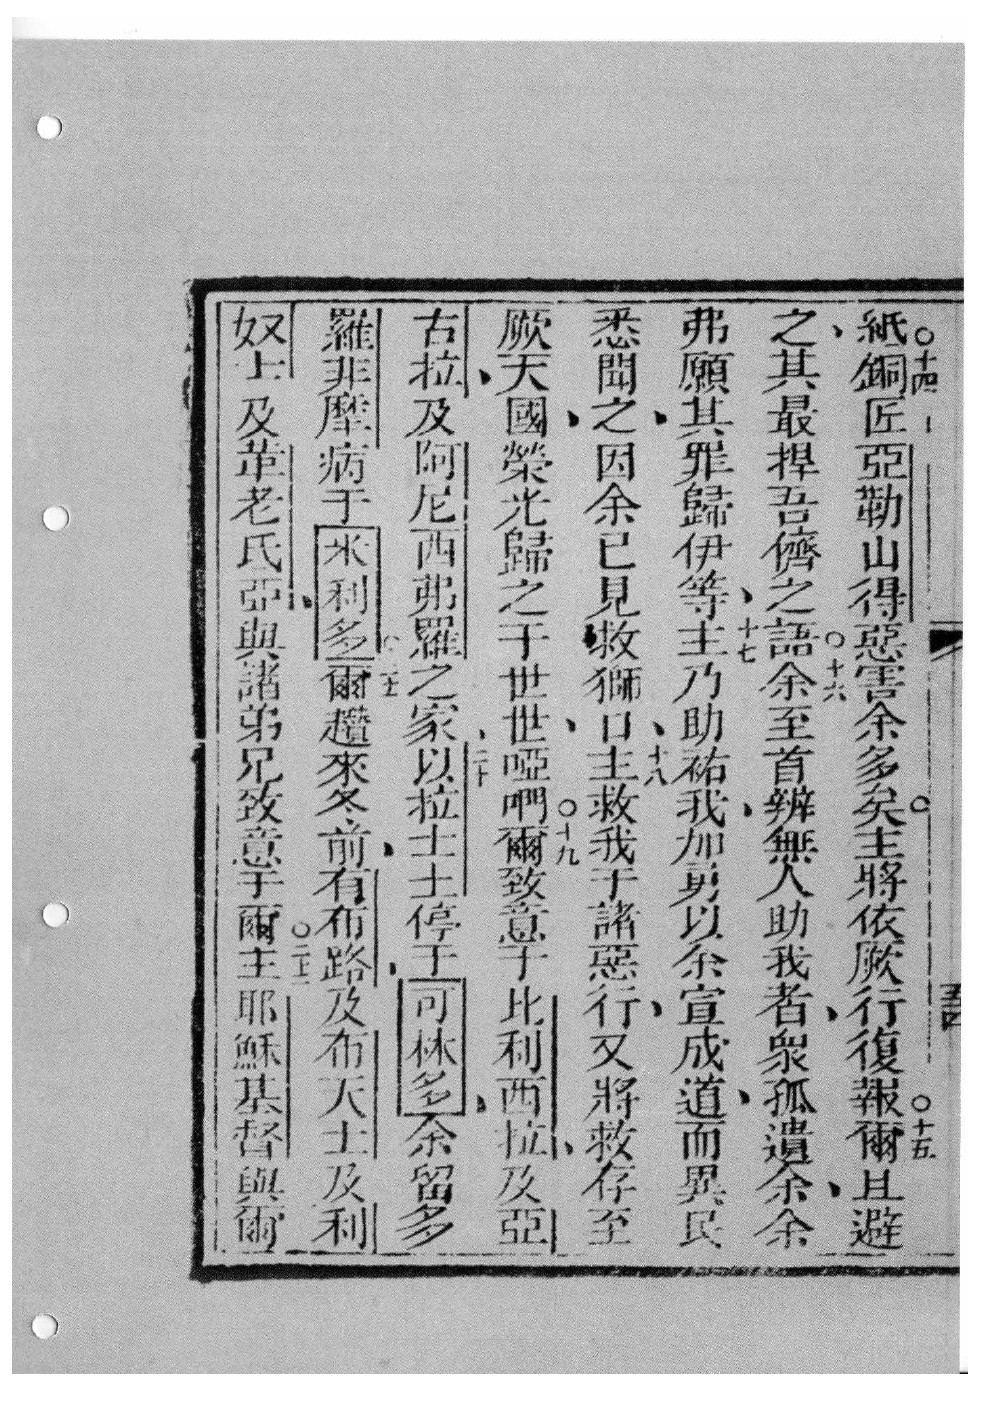 紙銅匠亞勒山得惡害余多矣主將依厥行復報爾且避
之其最捍吾儕之語余至首辨無人助我者衆孤遺余余
弗願其罪歸伊等主乃助祐我加勇以余宣成道而異民
悉聞之因余已見救獅口主救我于諸惡行又將救存至
厥天國榮光歸之于世世啞𠵽爾致意于比利西拉及亞
古拉及阿尼西弗羅之家以拉士士停于可林多余留多
羅非摩病于米利多爾趲來冬前有布路及布大士及利
奴上及革老氏亞與諸弟兄致意于爾主耶穌基督與爾
十四
十五
十六
十七
十八
十九
二十
二十一
二十二